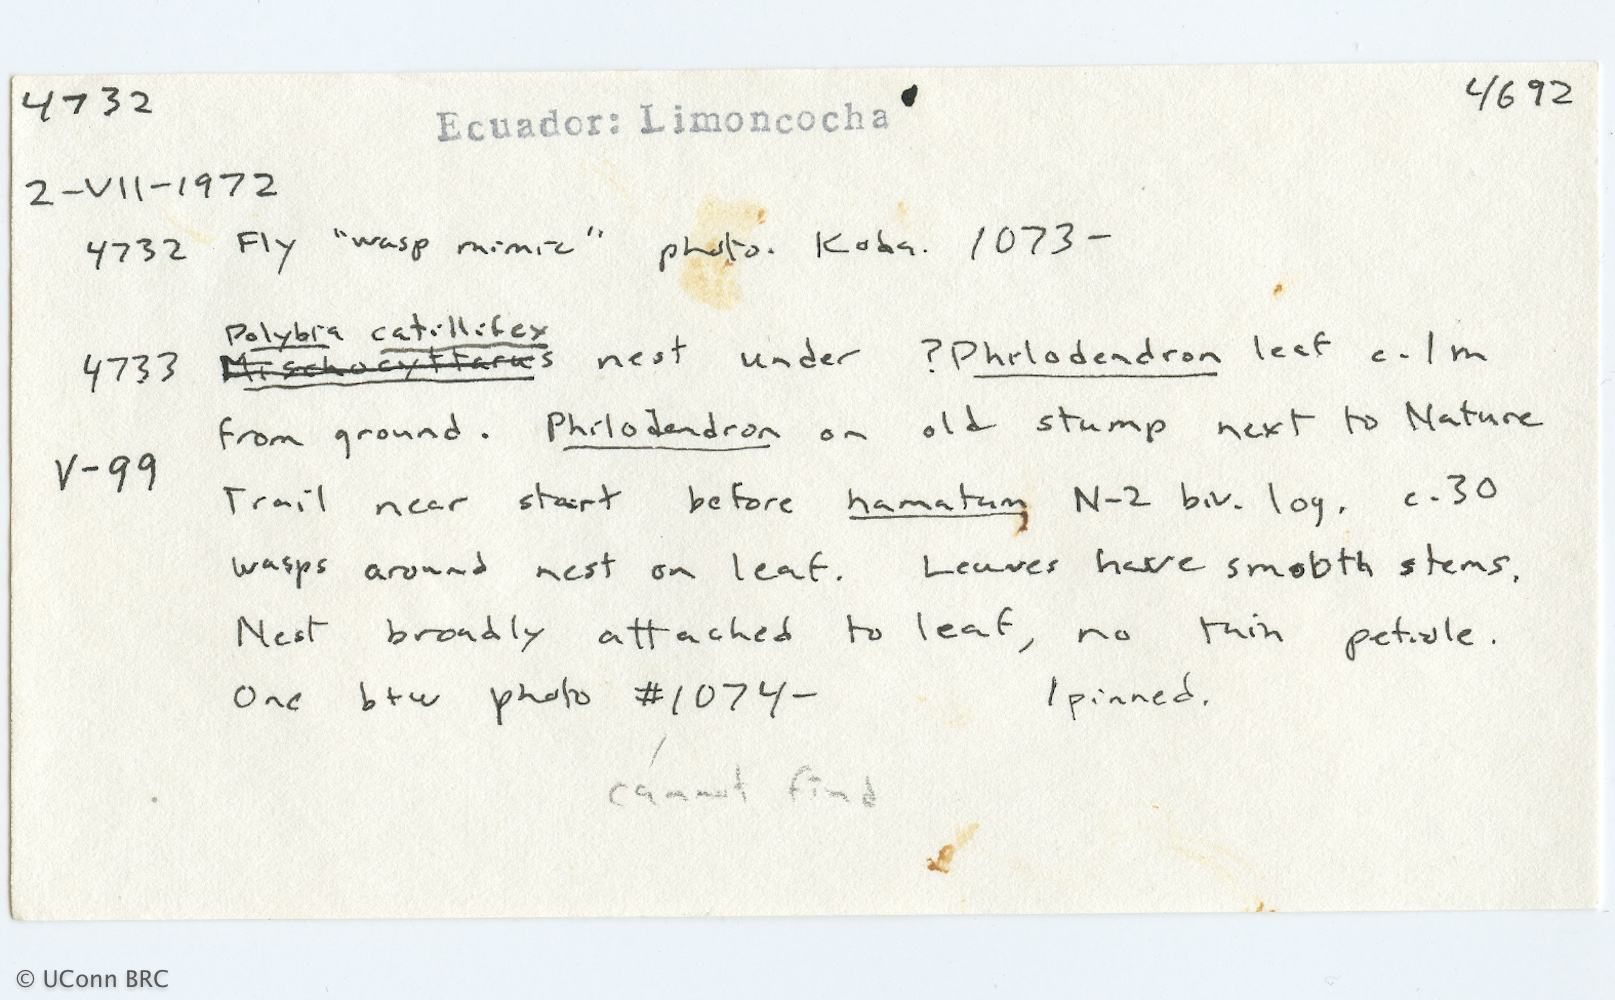 4732 Ecuador: Limoncocha 4692
2-VII-1972
4732 Fly "wasp mimic" photo. Koda. 1073-
Polybia catillifex
4733 Mischocyttarus nest under ?Philodendron leaf c. 1m
from ground. Philodendron on old stump next to Nature
V-99
Trail near start before hamatum N-2 biv. log. c. 30
wasps around nest on leaf. Leaves have smooth stems.
Nest broadly attached to leaf, no thin petiole.
One b+w photo #1074- 1 pinned.
cannot find
© UConn BRC